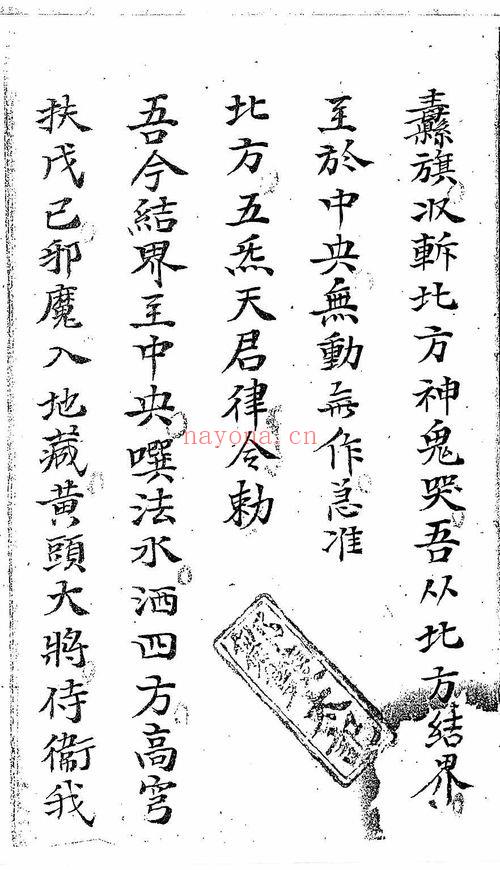 纛旗収斬北方神鬼哭吾从北方結界
至於中央無動無作急准
北方五炁天君律令勅
吾今結界至中央噀法水洒四方高穹
扶戊己邪魔入地藏黄頭大將侍衛我
nayona.cn